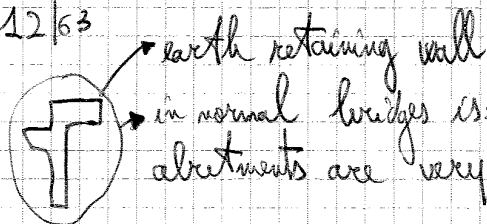 12/63
earth retaining wall
in normal bridges is
abutments are very